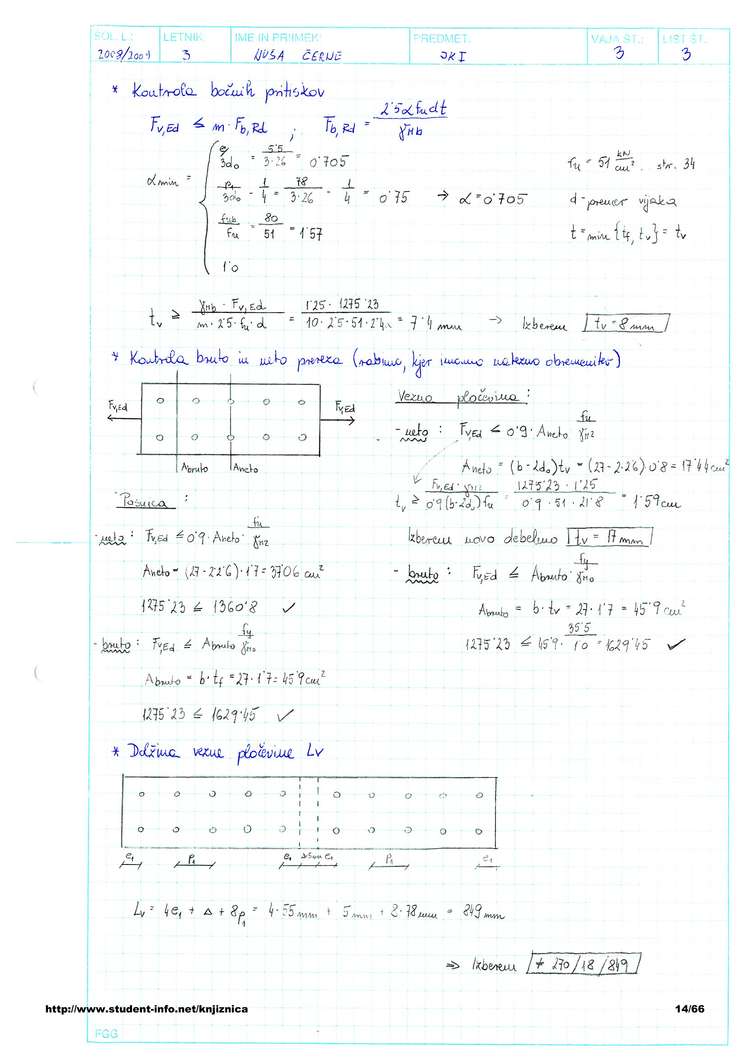 ŠOL. L.: LETNIK: IME IN PRIIMEK: PREDMET: VAJA ŠT.: LIST ŠT.:
2008/2009 3 NUŠA ČERNE JK I 3 3
* Kontrola bočnih pritiskov
Fv,Ed ≤ m · Fb,Rd ; Fb,Rd = 2'5 α fu d t / γMb
αmin = { e1/3d0 = 55/3·26 = 0'705
p1/3d0 - 1/4 = 78/3·26 - 1/4 = 0'75 → α = 0'705
fub/fu = 80/51 = 1'57
1'0
fu = 51 kN/cm² str. 34
d - premer vijaka
t = min {tf, tv} = tv
tv ≥ γMb · Fv,Ed / m · 2'5 · fu · d = 1'25 · 1275'23 / 10 · 2'5 · 51 · 2'4 = 7'4 mm → Izberem tv = 8 mm
* Kontrola bruto in neto prereza (rabimo, kjer imamo natezno obremenitev)
Fv,Ed Fv,Ed
Abruto Aneto
Vezna pločevina :
- neto : Fv,Ed ≤ 0'9 · Aneto fu/γM2
Aneto = (b - 2d0) tv = (27 - 2·2'6) 0'8 = 17'44 cm²
tv ≥ Fv,Ed · γM2 / 0'9 (b-2d0) fu = 1275'23 · 1'25 / 0'9 · 51 · 21'8 = 1'59 cm
Izberem novo debelino tv = 17 mm
- bruto : Fv,Ed ≤ Abruto · fy/γM0
Abruto = b · tv = 27 · 1'7 = 45'9 cm²
1275'23 ≤ 45'9 · 35'5/1'0 = 1629'45 ✓
Pasnica :
- neto : Fv,Ed ≤ 0'9 · Aneto · fu/γM2
Aneto = (27 - 2·2'6) · 1'7 = 37'06 cm²
1275'23 ≤ 1360'8 ✓
- bruto : Fv,Ed ≤ Abruto fy/γM0
Abruto = b · tf = 27 · 1'7 = 45'9 cm²
1275'23 ≤ 1629'45 ✓
* Dolžina vezne pločevine Lv
e1 p1 e1 Δ5mm e1 p1 e1
Lv = 4e1 + Δ + 8p1 = 4·55 mm + 5 mm + 8·78 mm = 849 mm
⇒ Izberem ≠ 270/18/849
http://www.student-info.net/knjiznica 14/66
FGG